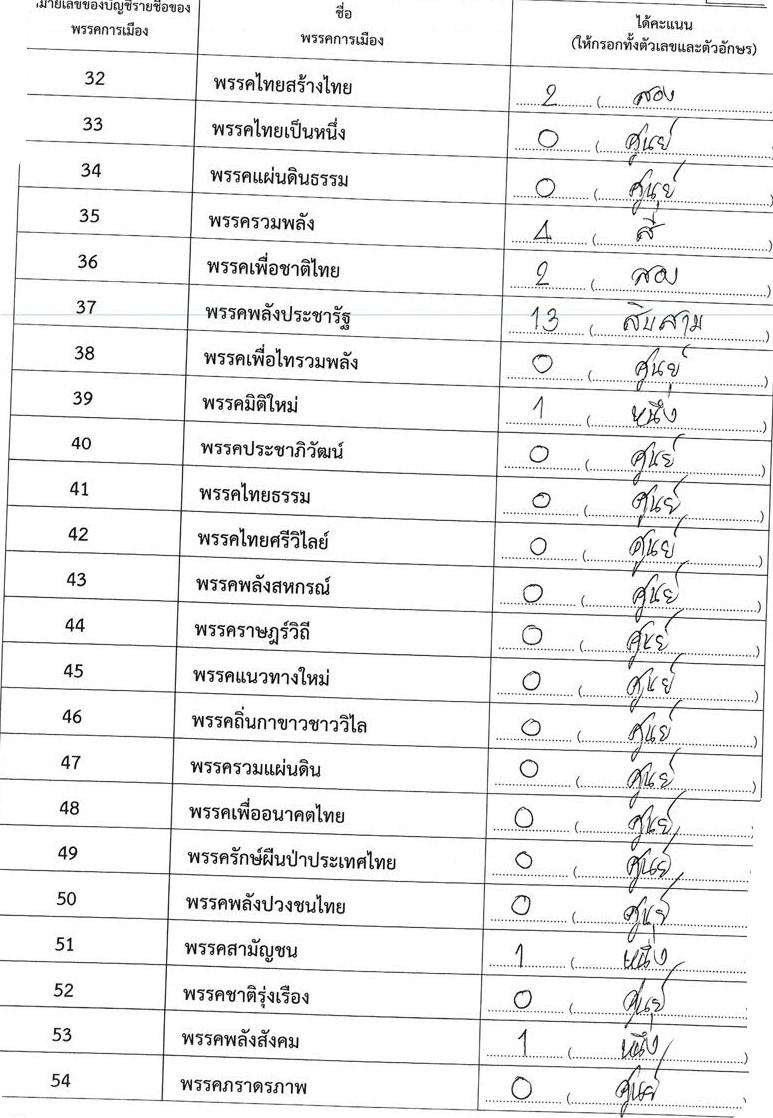 หมายเลขของบัญชีรายชื่อของ
พรรคการเมือง
ชื่อ
พรรคการเมือง
ได้คะแนน
(ให้กรอกทั้งตัวเลขและตัวอักษร)
32 พรรคไทยสร้างไทย 2 ( สอง
33 พรรคไทยเป็นหนึ่ง 0 ( ศูนย์
34 พรรคแผ่นดินธรรม 0 ( ศูนย์ )
35 พรรครวมพลัง 4 ( สี่ )
36 พรรคเพื่อชาติไทย 2 ( สอง )
37 พรรคพลังประชารัฐ 13 ( สิบสาม )
38 พรรคเพื่อไทรวมพลัง 0 ( ศูนย์ )
39 พรรคมิติใหม่ 1 ( หนึ่ง )
40 พรรคประชาภิวัฒน์ 0 ( ศูนย์ )
41 พรรคไทยธรรม 0 ( ศูนย์ )
42 พรรคไทยศรีวิไลย์ 0 ( ศูนย์ )
43 พรรคพลังสหกรณ์ 0 ( ศูนย์ )
44 พรรคราษฎร์วิถี 0 ( ศูนย์ )
45 พรรคแนวทางใหม่ 0 ( ศูนย์ )
46 พรรคถิ่นกาขาวชาววิไล 0 ( ศูนย์ )
47 พรรครวมแผ่นดิน 0 ( ศูนย์ )
48 พรรคเพื่ออนาคตไทย 0 ( ศูนย์ )
49 พรรครักษ์ผืนป่าประเทศไทย 0 ( ศูนย์ )
50 พรรคพลังปวงชนไทย 0 ( ศูนย์ )
51 พรรคสามัญชน 1 ( หนึ่ง )
52 พรรคชาติรุ่งเรือง 0 ( ศูนย์ )
53 พรรคพลังสังคม 1 ( หนึ่ง )
54 พรรคภราดรภาพ 0 ( ศูนย์ )